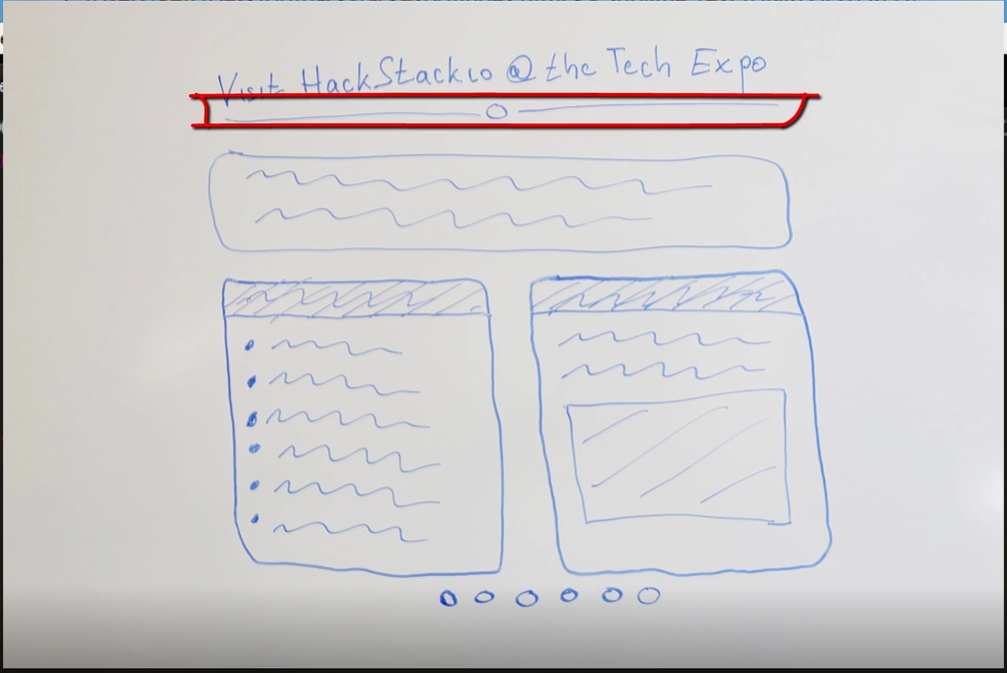 Visit HackStack.io @ the Tech Expo